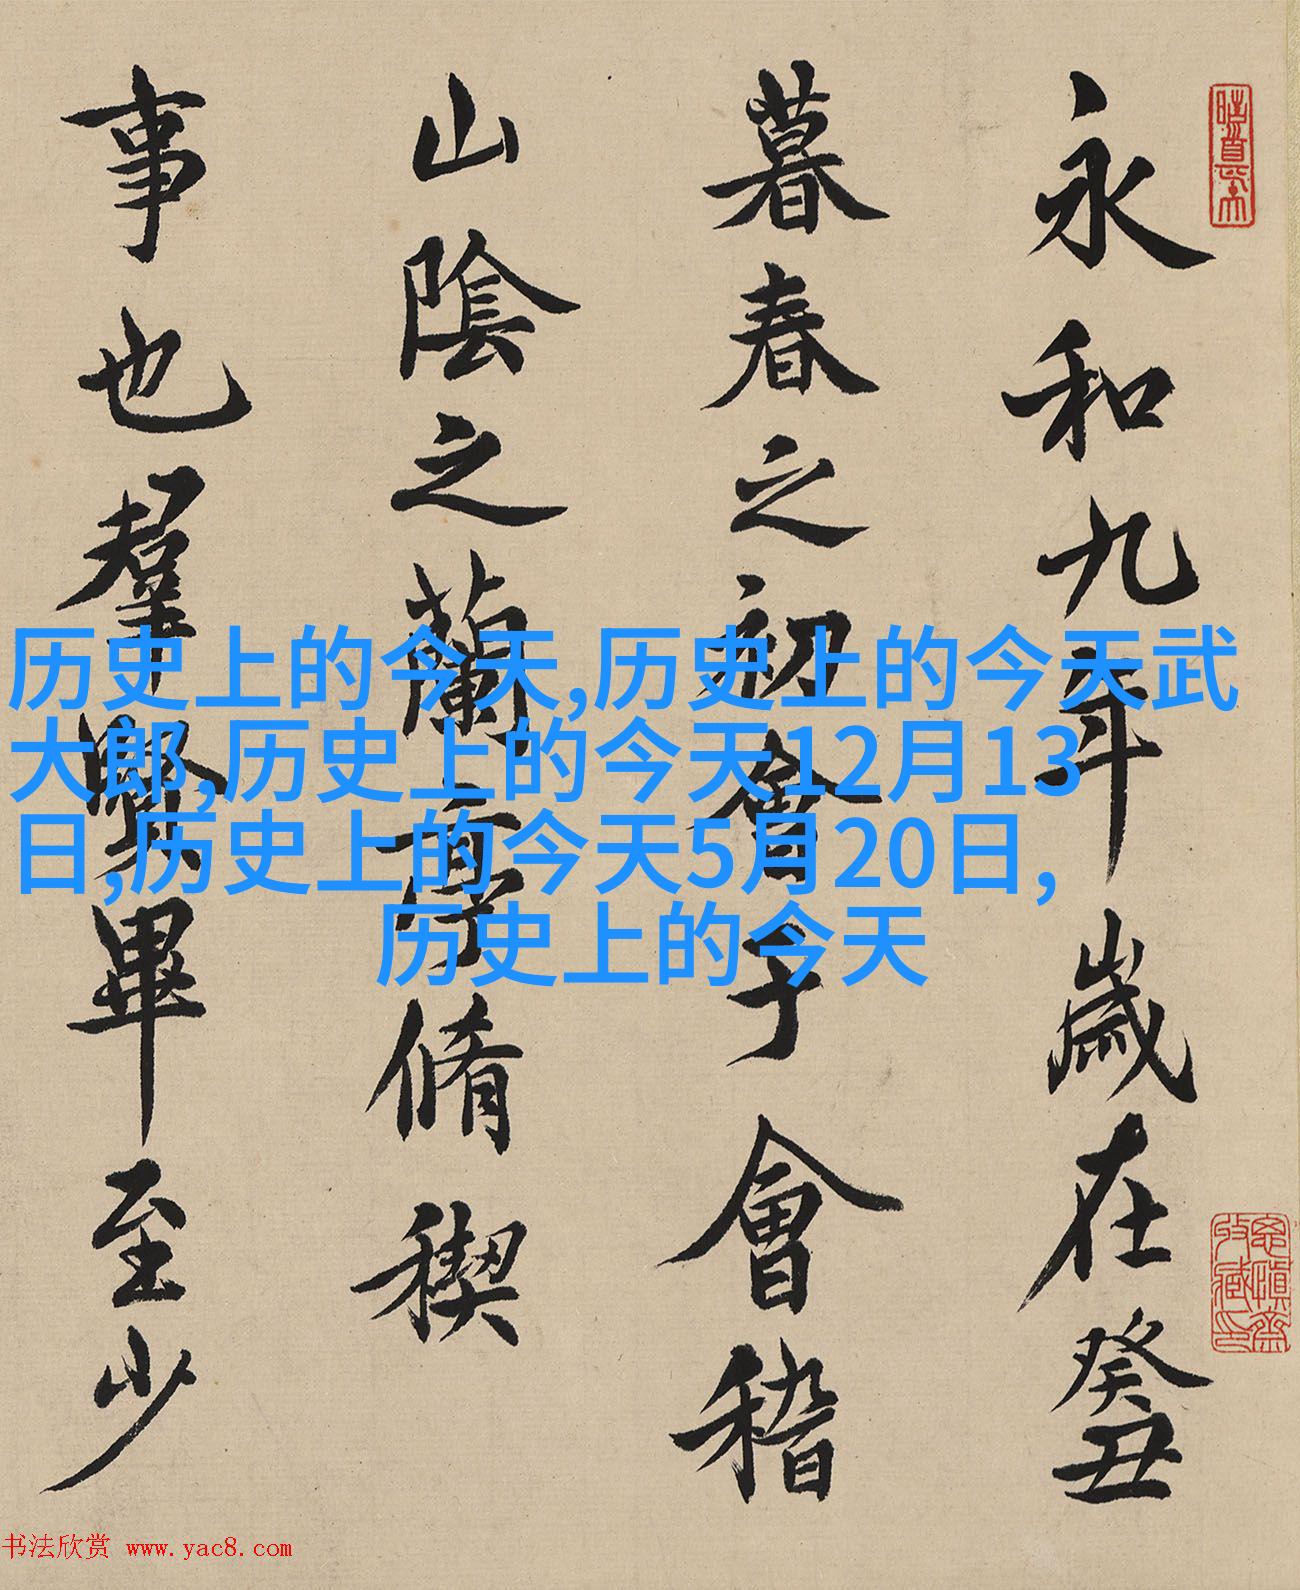 永和九年歲在癸丑
暮春之初會于會稽
山陰之蘭亭脩稧
事也羣賢畢至少
历史上的今天,历史上的今天武
大郎,历史上的今天12月13
日,历史上的今天5月20日,
历史上的今天
书法欣赏 www.yac8.com